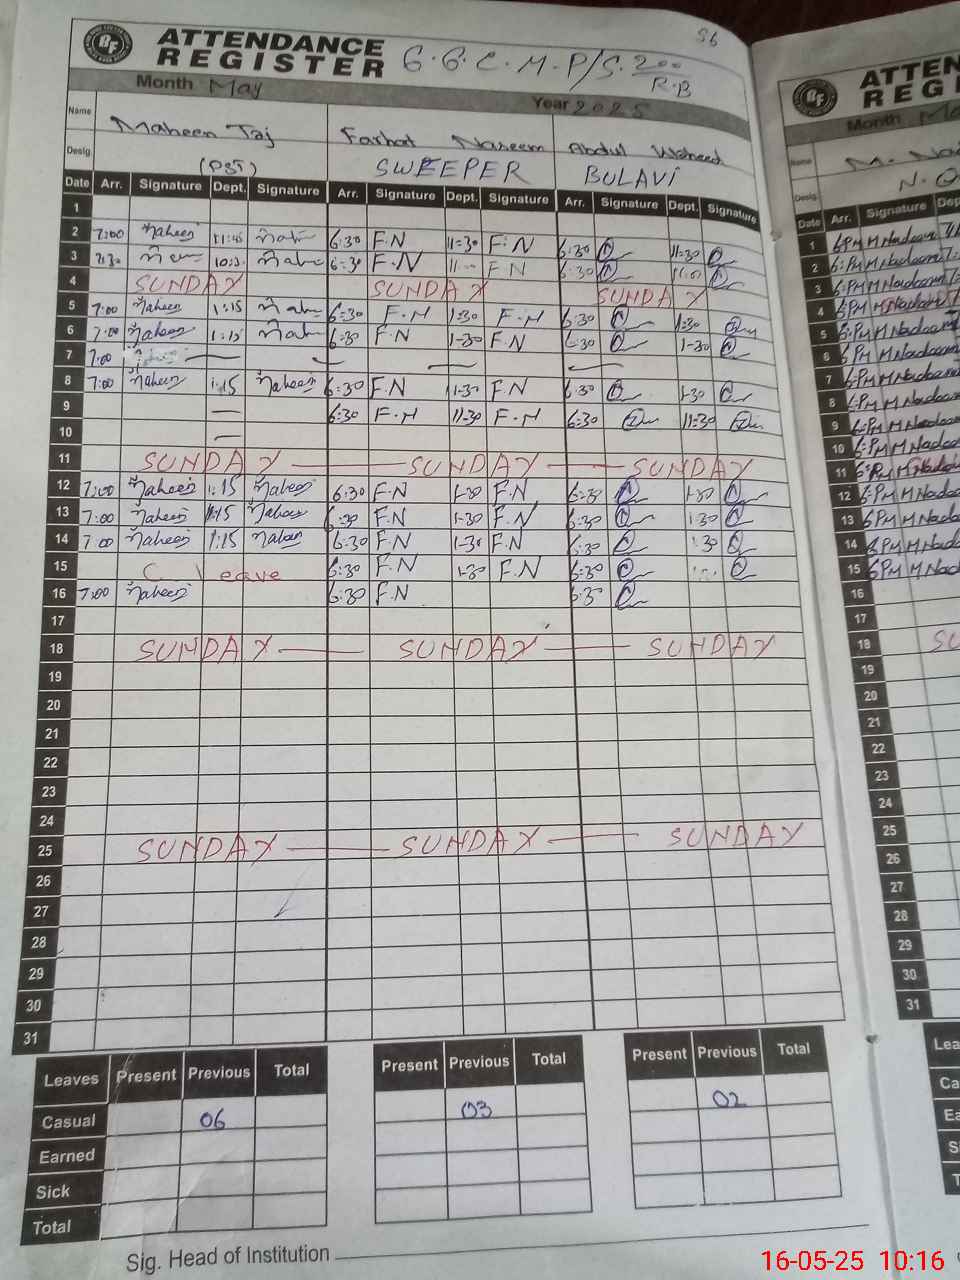 56
ATTENDANCE
REGISTER G.G.C.M.P/S.200
R.B
Month May Year 2025
Name Maheen Taj Farhat Naseem Abdul Waheed
Desig. (PST) SWEEPER BULAVI
Date Arr. Signature Dept. Signature Arr. Signature Dept. Signature Arr. Signature Dept. Signature
1
2 7:00 Maheen 11:45 6:30 F.N 11:30 F.N 6:30 11:30
3 7:30 10:3 6:30 F.N 11 F N 6:30
4 SUNDAY SUNDAY SUNDAY
5 7:00 Maheen 1:15 6:30 F.N 1:30 F.N 6:30 1:30
6 7:00 Maheen 1:15 6:30 F.N 1-30 F.N 6:30 1-30
7 7:00
8 7:00 Maheen 1:15 Maheen 6:30 F.N 11-30 F.N 6:30 1-30
9 6:30 F.N 11-30 F.N 6:30 11:30
10
11 SUNDAY SUNDAY SUNDAY
12 7:00 Maheen 1:15 Maheen 6:30 F.N 1-30 F.N 6:30 1-30
13 7:00 Maheen 1:15 Maheen 6:30 F.N 1-30 F.N 6:30 1:30
14 7:00 Maheen 1:15 Maheen 6:30 F.N 1-30 F.N 6:30 1:30
15 C leave 6:30 F.N 1-30 F.N 6:30
16 7:00 Maheen 6:30 F.N 6:3
17
18 SUNDAY SUNDAY SUNDAY
19
20
21
22
23
24
25 SUNDAY SUNDAY SUNDAY
26
27
28
29
30
31
Leaves Present Previous Total Present Previous Total Present Previous Total
Casual 06 03 02
Earned
Sick
Total
Sig. Head of Institution
ATTEN
REGI
Month
Name
Desig.
Date Arr. Signature Dep
1 6PM M Nadeem
2 6:PM M Nadeem
3 6:PM M Nadeem
4 6PM M Nadeem
5 6:PM M Nadeem
6 6PM M Nadeem
7 6:PM M Nadeem
8 6:PM M Nadeem
9 6:PM M Nadeem
10 6:PM M Nadeem
11 6:PM M Nadeem
12 6:PM M Nadeem
13 6PM M Nadeem
14 6PM M Nadeem
15 6PM M Nad
16
17
18 SU
19
20
21
22
23
24
25
26
27
28
29
30
31
Lea
Ca
Ea
S
T
16-05-25 10:16